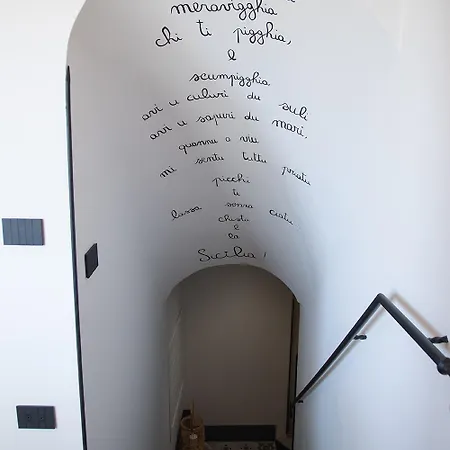 meravigghia
chi ti pigghia,
e
scumpigghia
avi u culuri du suli
avi u sapuri du mari,
quannu a viu
mi sentu tuttu priatu
picchì
ti
lassa senza ciatu
chista
è
la
Sicilia!